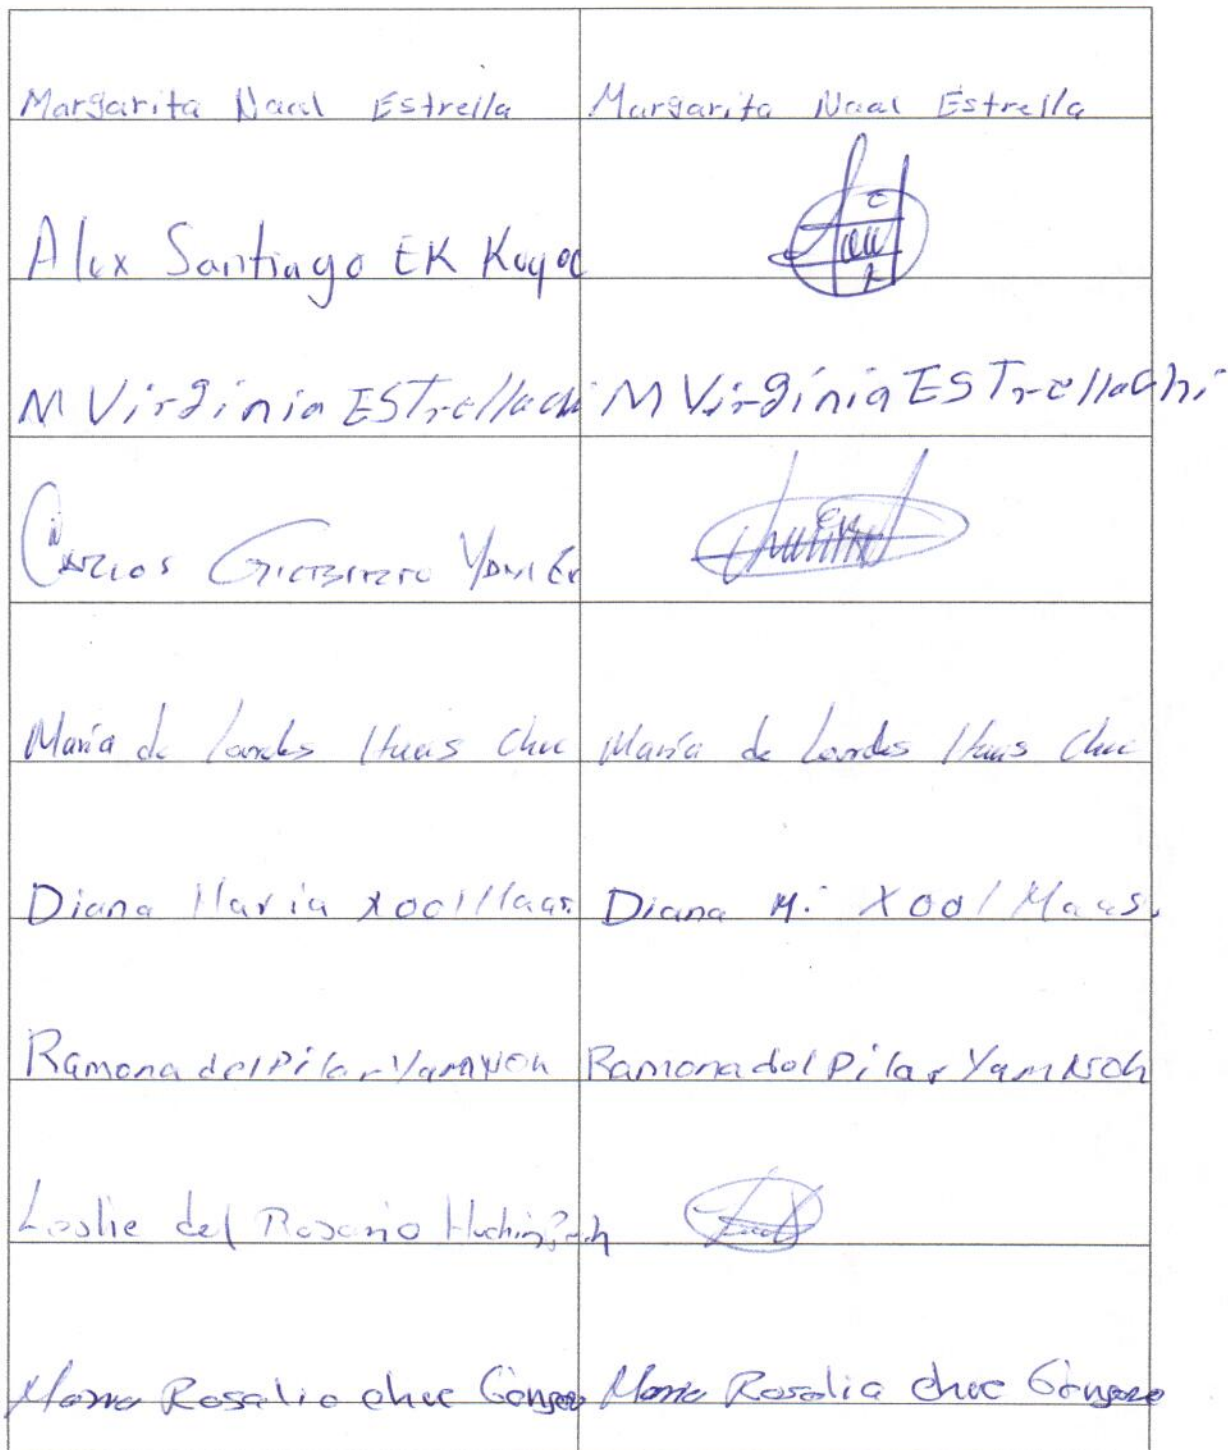 Margarita Naal Estrella Margarita Naal Estrella
Alex Santiago EK Kuyoc
M Virginia ESTrellachi M Virginia ESTrellachi
Carlos Gilberto Yam Ek
María de Lourdes Haas Chuc María de Lourdes Haas Chuc
Diana María Xool Maas. Diana M. Xool Maas.
Ramona del Pilar Yam Noh Ramona del Pilar Yam Noh
Leslie del Rosario Huchin
Maria Rosalia chuc Gongora Maria Rosalia chuc Gongora